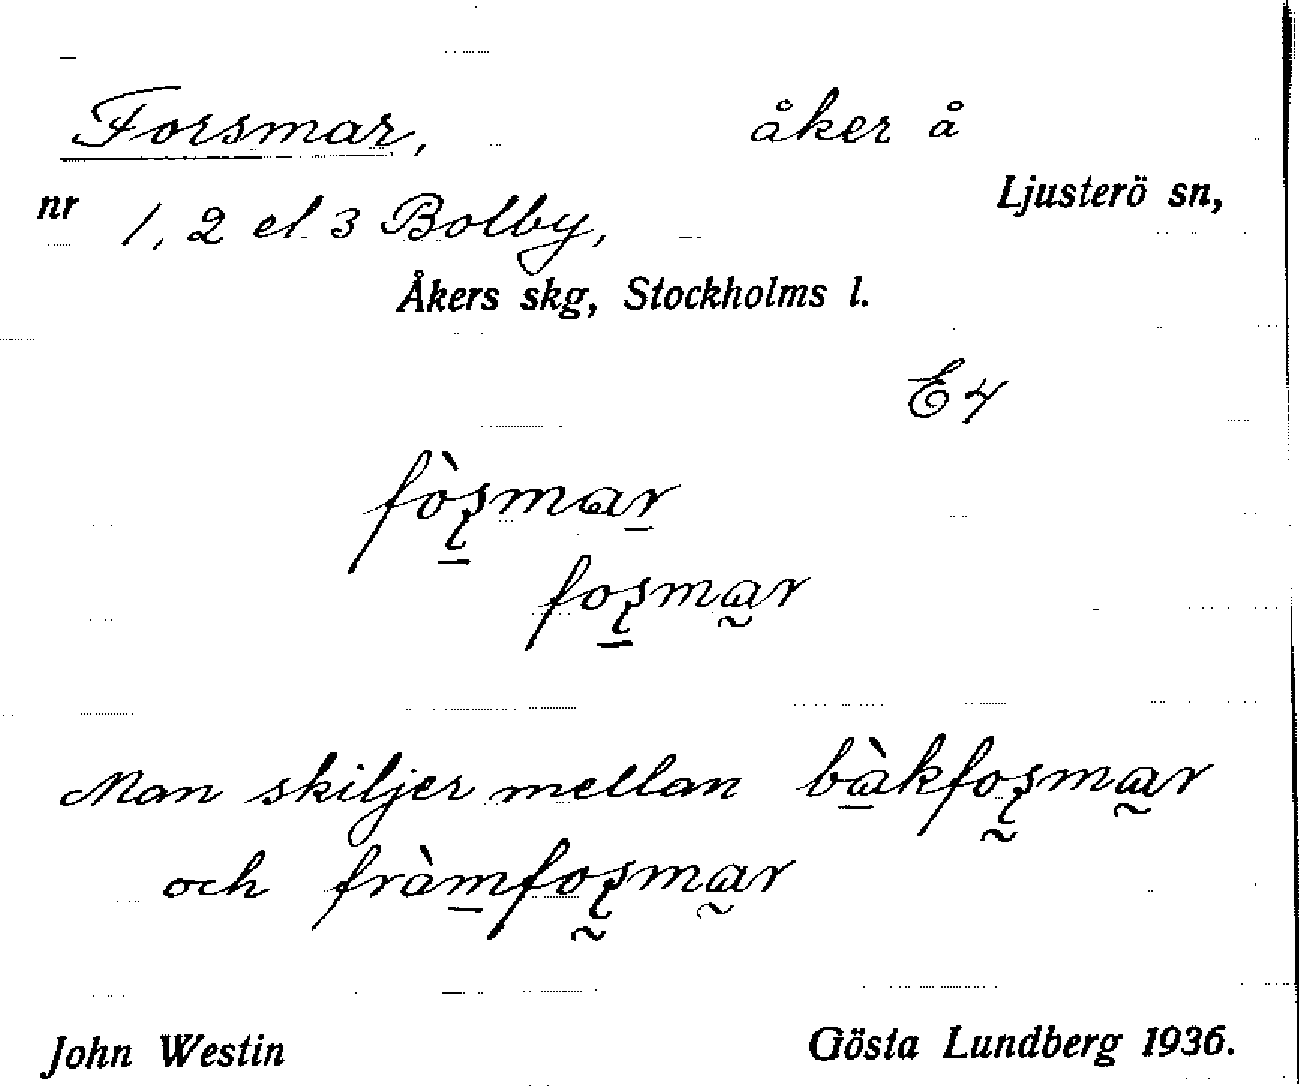 Forsmar, åker å
Ljusterö sn,
nr 1, 2 el 3 Bolby,
Åkers skg, Stockholms l.
E4
fòʂmar
foʂmar
Man skiljer mellan bàkfoʂmar
och fràmfoʂmar
John Westin Gösta Lundberg 1936.